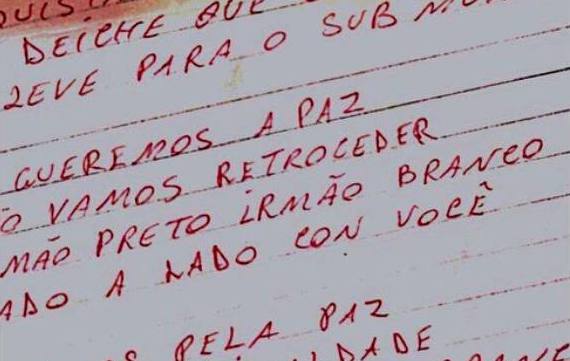 DEICHE QUE
LEVE PARA O SUB MUN
QUEREMOS A PAZ
O VAMOS RETROCEDER
MÃO PRETO IRMÃO BRANCO
ADO A LADO CON VOCÊ
S PELA PAZ
LDADE